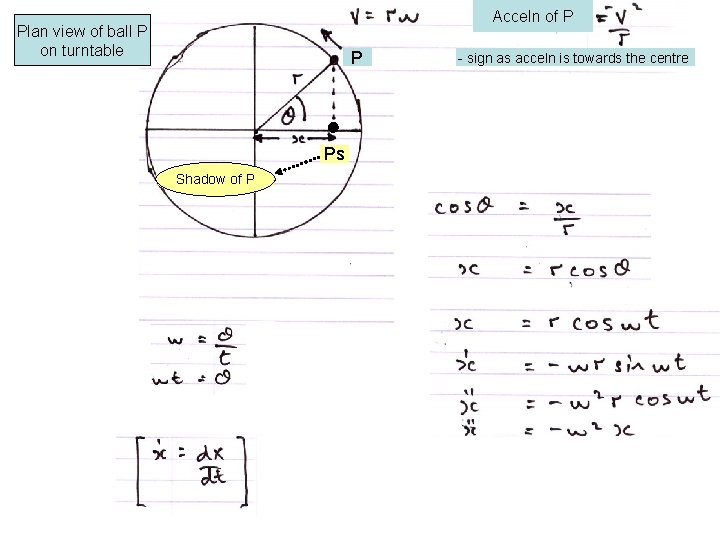 Plan view of ball P
on turntable
v = rω
Acceln of P = -v²/r
P
- sign as acceln is towards the centre
r
θ
x
Ps
Shadow of P
cosθ = x/r
x = r cosθ
x = r cos ωt
ẋ = -ωr sin ωt
ẍ = -ω² r cos ωt
ẍ = -ω² x
ω = θ/t
ωt = θ
[ẋ = dx/dt]